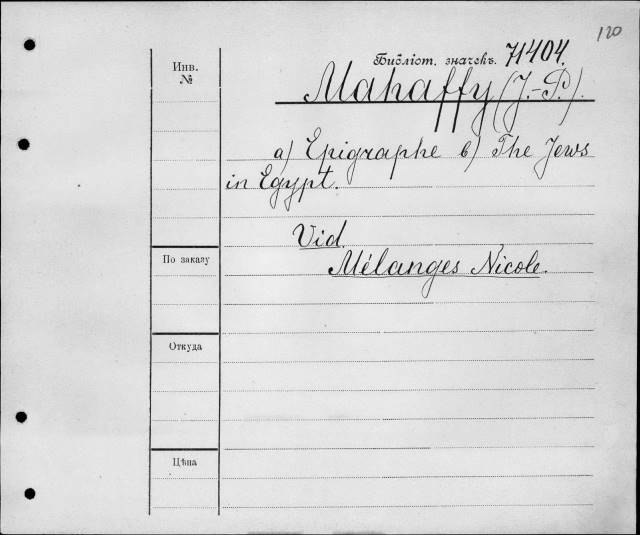 120
Библіот. значекъ. 71404.
Инв.
№
Mahaffy (J.-P.).
a) Epigraphe b) The Jews
in Egypt.
Vid.
Mélanges Nicole.
По заказу
Откуда
Цѣна